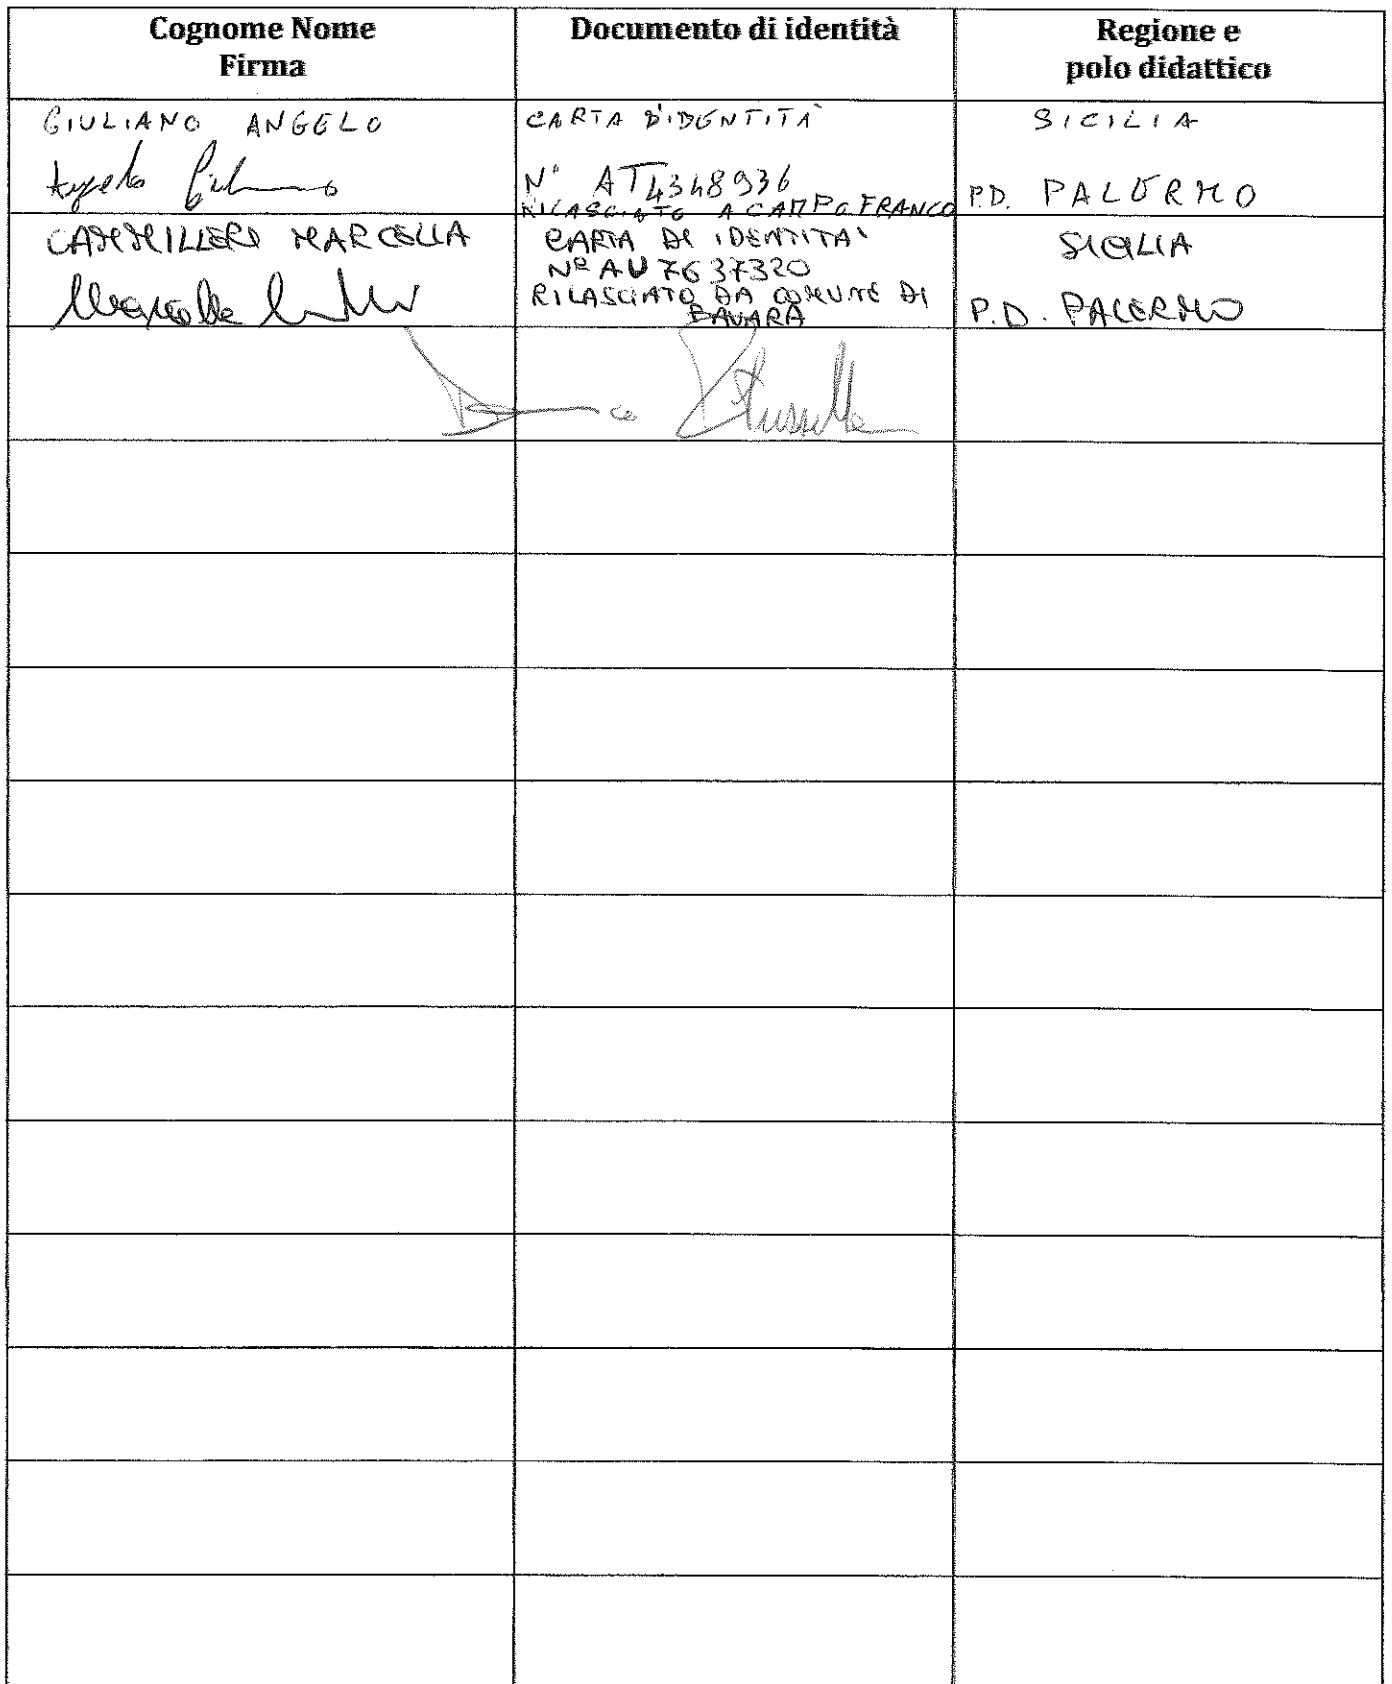 Cognome Nome
Firma
Documento di identità
Regione e
polo didattico
GIULIANO ANGELO
Angelo Giuliano
CARTA D'IDENTITÀ
N° AT4348936
RILASCIATO A CAMPOFRANCO
SICILIA
P.D. PALERMO
CAMMILLERI MARCELLA
Marcella
CARTA DI IDENTITA'
Nº AU 7637320
RILASCIATO DA COMUNE DI
SICILIA
P.D. PALERMO